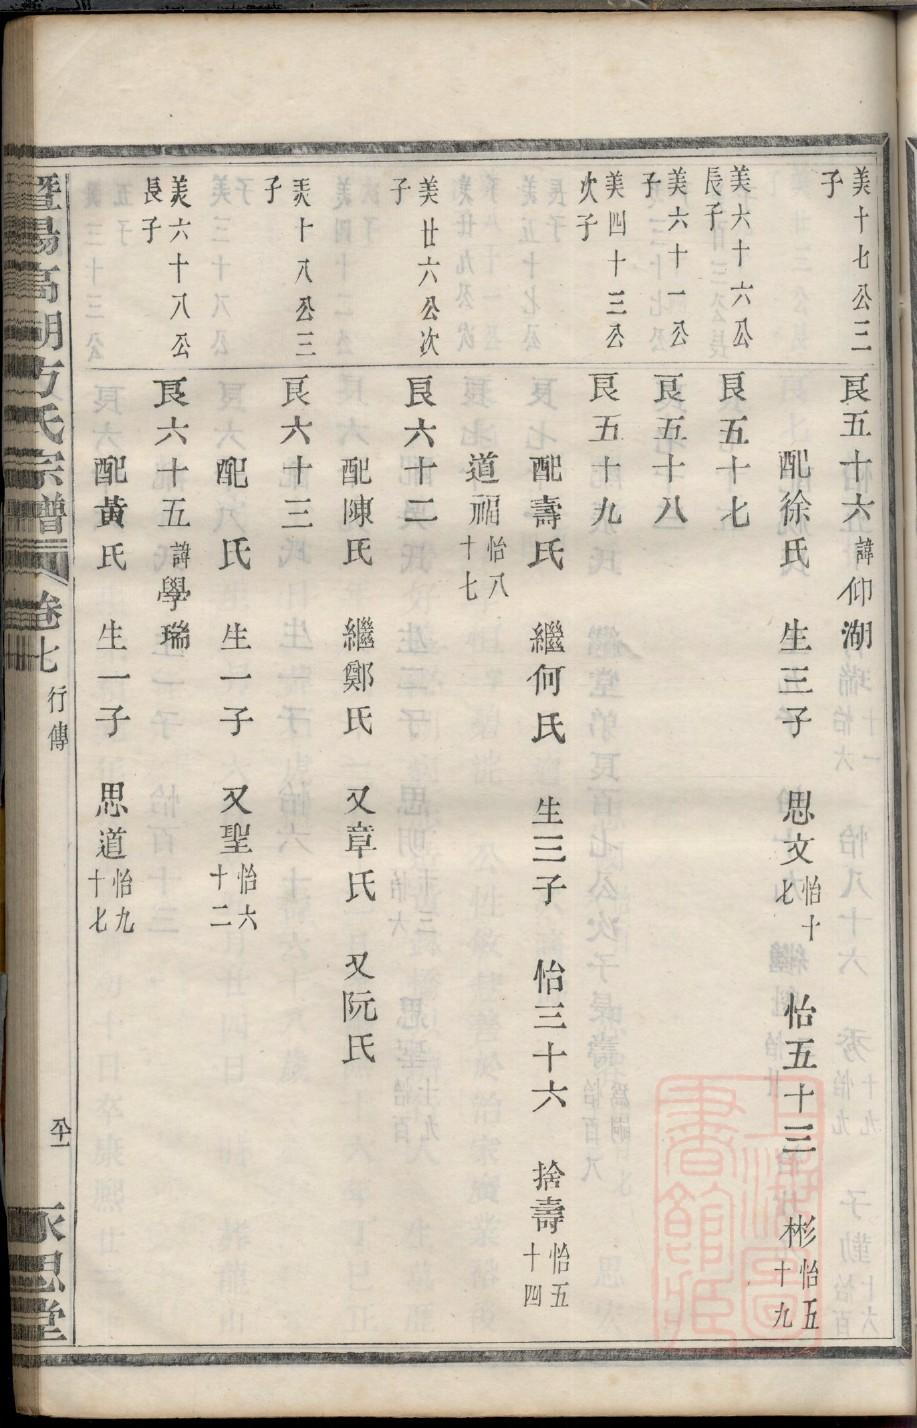 美十七公三子
良五十六諱仰湖
配徐氏 生三子 思文怡十七 怡五十三 彬怡五十九
美六十六公長子
良五十七
美六十一公子
良五十八
美四十三公次子
良五十九
配壽氏 繼何氏 生三子 怡三十六 捨壽怡五十四
道福怡八十七
美廿六公次子
良六十二
配陳氏 繼鄭氏 又章氏 又阮氏
美十八公三子
良六十三
配 氏 生一子 又聖怡六十二
美六十八公長子
良六十五諱學瑞
配黃氏 生一子 思道怡九十七
暨陽高湖方氏宗譜
卷七 行傳
永思堂